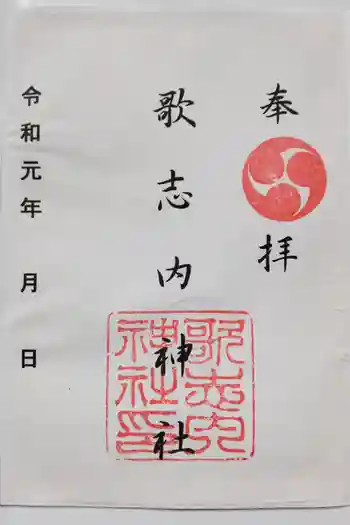 奉拝
歌志内神社
歌志内神社印
令和元年 月 日